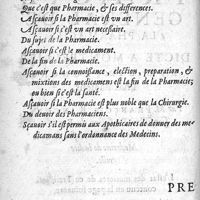 Que c'est que Pharmacie, & ses differences.
Asçauoir si la Pharmacie est vn art.
Asçauoir si c'est vn art necessaire.
Du sujet de la Pharmacie.
Asçauoir si c'est le medicament.
De la fin de la Pharmacie.
Asçauoir si la connoissance, election, preparation, &
mixtions des medicamens est la fin de la Pharmacie;
ou bien si c'est la santé.
Asçauoir si la Pharmacie est plus noble que la Chirurgie.
Du deuoir des Pharmaciens.
Sçauoir s'il est permis aux Apothicaires de donner des me-
dicamans sans l'ordonnance des Medecins.
PRE